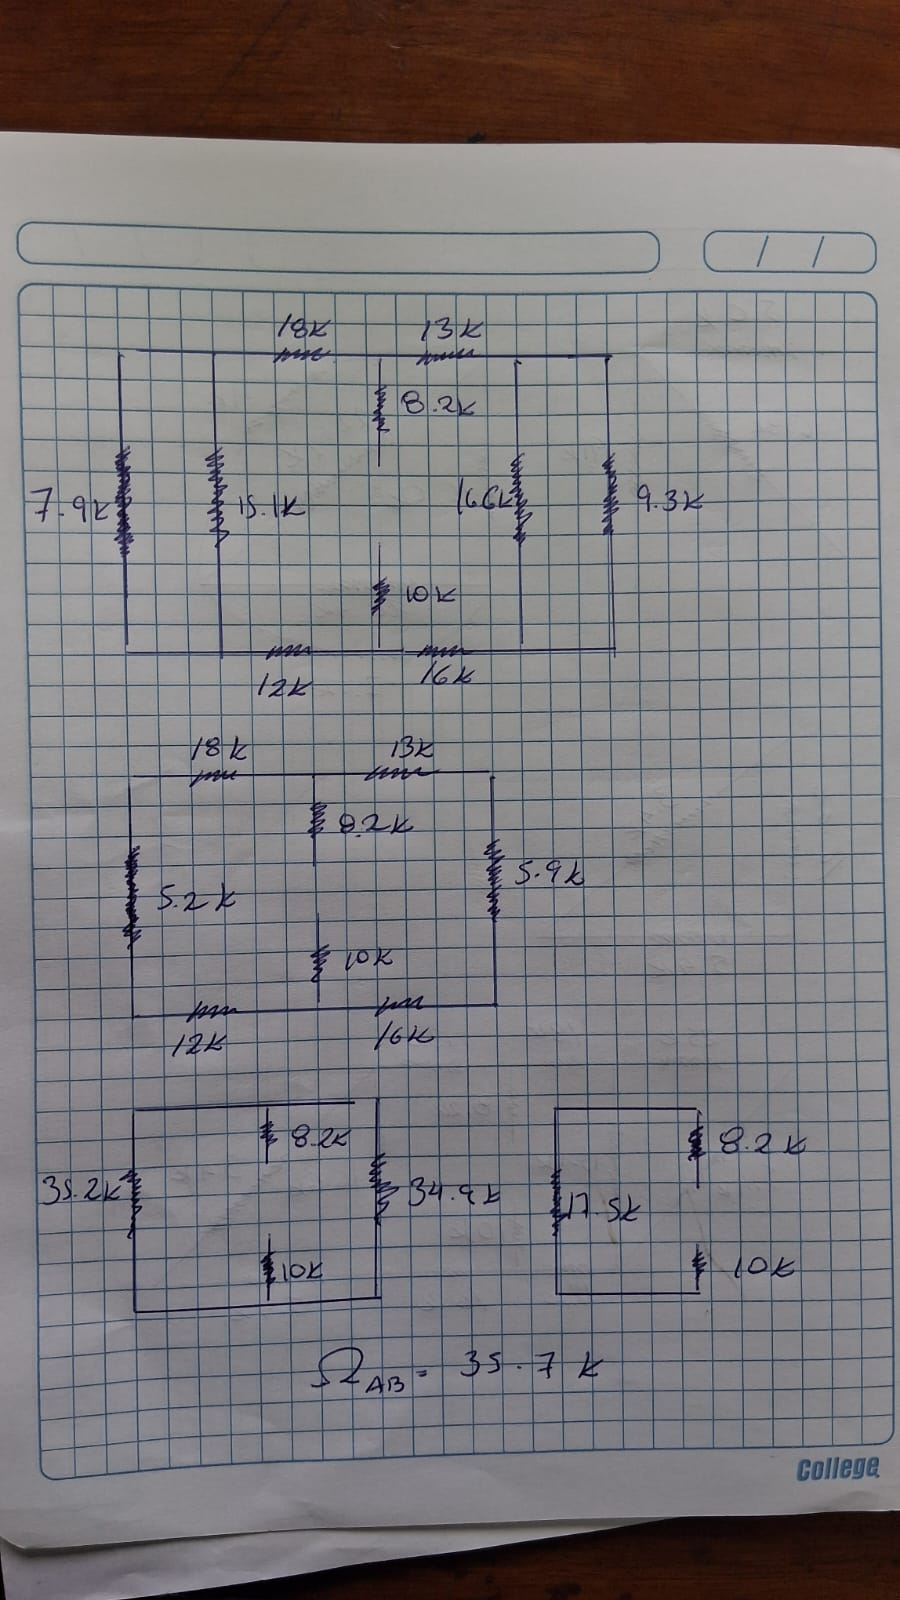 18K 13K
8.2K
7.9K 15.1K 16.6K 9.3K
10K
12K 16K
18K 13K
8.2K
5.2K 5.9K
10K
12K 16K
8.2K 8.2K
35.2K 34.9K 17.5K
10K 10K
Ω AB = 35.7 K
College